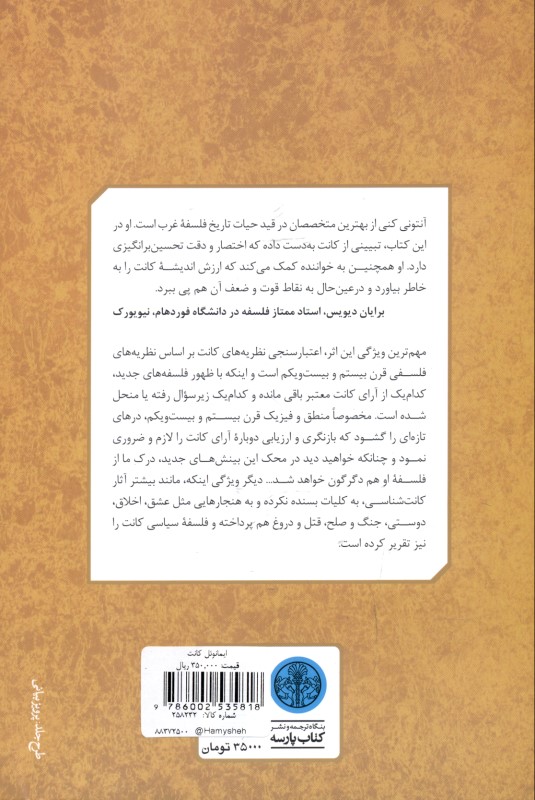 آنتونی کنی از بهترین متخصصان در قید حیات تاریخ فلسفهٔ غرب است. او در
این کتاب، تبیینی از کانت به‌دست داده که اختصار و دقت تحسین‌برانگیزی
دارد. او همچنین به خواننده کمک می‌کند که ارزش اندیشهٔ کانت را به
خاطر بیاورد و درعین‌حال به نقاط قوت و ضعف آن هم پی ببرد.
برایان دیویس، استاد ممتاز فلسفه در دانشگاه فوردهام، نیویورک
مهم‌ترین ویژگی این اثر، اعتبارسنجی نظریه‌های کانت بر اساس نظریه‌های
فلسفی قرن بیستم و بیست‌ویکم است و اینکه با ظهور فلسفه‌های جدید،
کدام‌یک از آرای کانت معتبر باقی مانده و کدام‌یک زیرسؤال رفته یا منحل
شده است. مخصوصاً منطق و فیزیک قرن بیستم و بیست‌ویکم، درهای
تازه‌ای را گشود که بازنگری و ارزیابی دوبارهٔ آرای کانت را لازم و ضروری
نمود و چنانکه خواهید دید در محک این بینش‌های جدید، درک ما از
فلسفهٔ او هم دگرگون خواهد شد... دیگر ویژگی اینکه، مانند بیشتر آثار
کانت‌شناسی، به کلیات بسنده نکرده و به هنجارهایی مثل عشق، اخلاق،
دوستی، جنگ و صلح، قتل و دروغ هم پرداخته و فلسفهٔ سیاسی کانت را
نیز تقریر کرده است.
ایمانوئل کانت
قیمت ۳۵۰,۰۰۰ ریال
9 786002 535818
شماره کالا: ۲۵۸۲۳۲
۸۸۳۷۲۵۰۰ @Hamysheh
بنگاه ترجمه و نشر
کتاب پارسه
۳۵۰۰۰ تومان
طرح جلد: پرویز بیانی